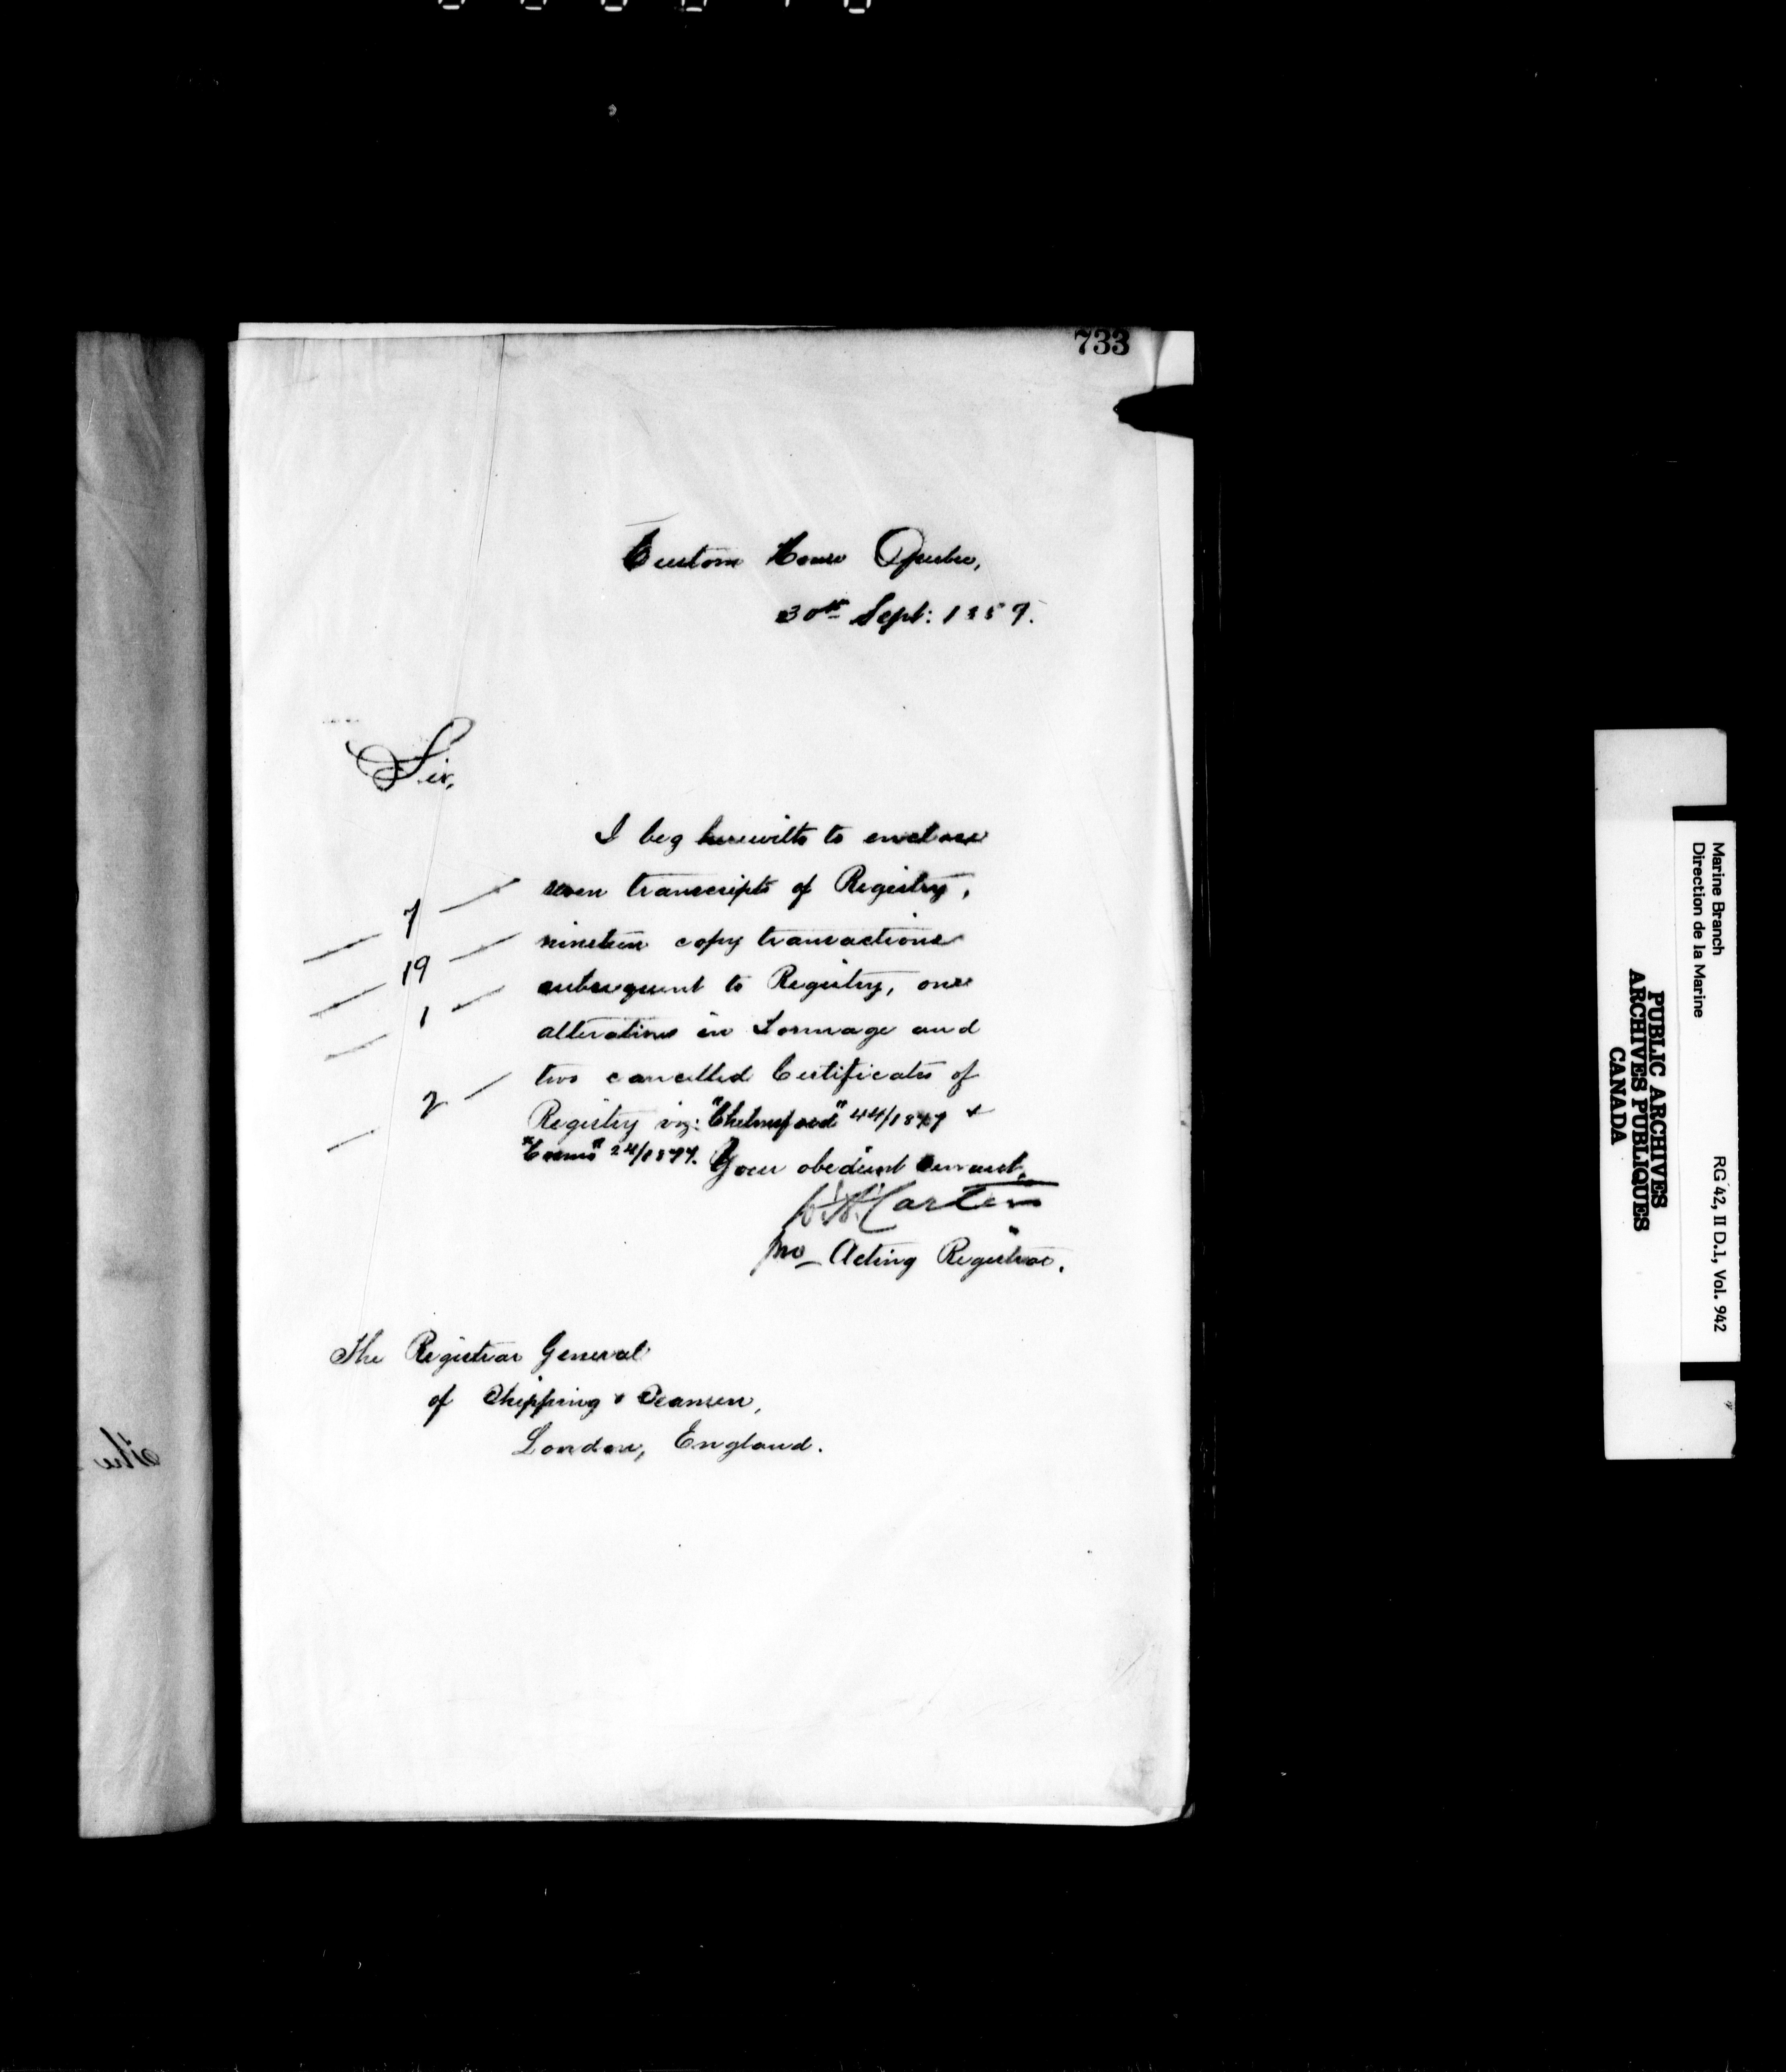 733
Custom House Quebec,
30th Sept: 1889.
Sir,
I beg herewith to enclose
7 seven transcripts of Registry,
19 nineteen copy transactions
1 subsequent to Registry, one
alteration in Tonnage and
2 two cancelled Certificates of
Registry viz: "Chelmsford" 44/1847 &
24/1877. Your obedient Servant,
pro Acting Registrar.
The Registrar General
of Shipping & Seamen,
London, England.
The
Marine Branch
Direction de la Marine
RG 42, II D.1, Vol. 942
PUBLIC ARCHIVES
ARCHIVES PUBLIQUES
CANADA